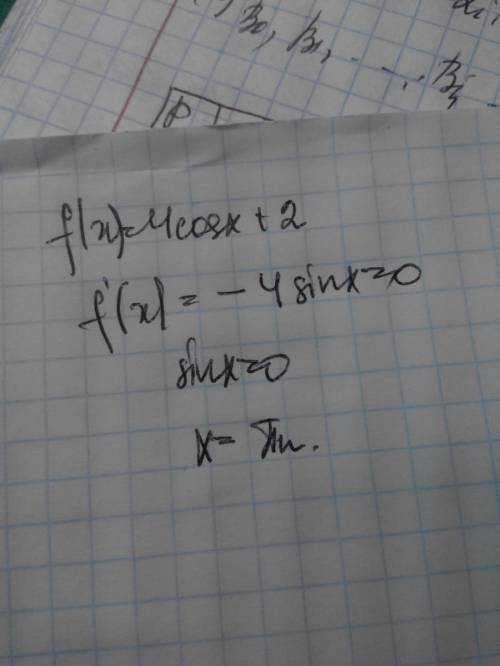 β₀, β₁, ..., β
P
f(x)=4cosx + 2
f'(x) = - 4 sinx=0
sinx=0
x= πn.